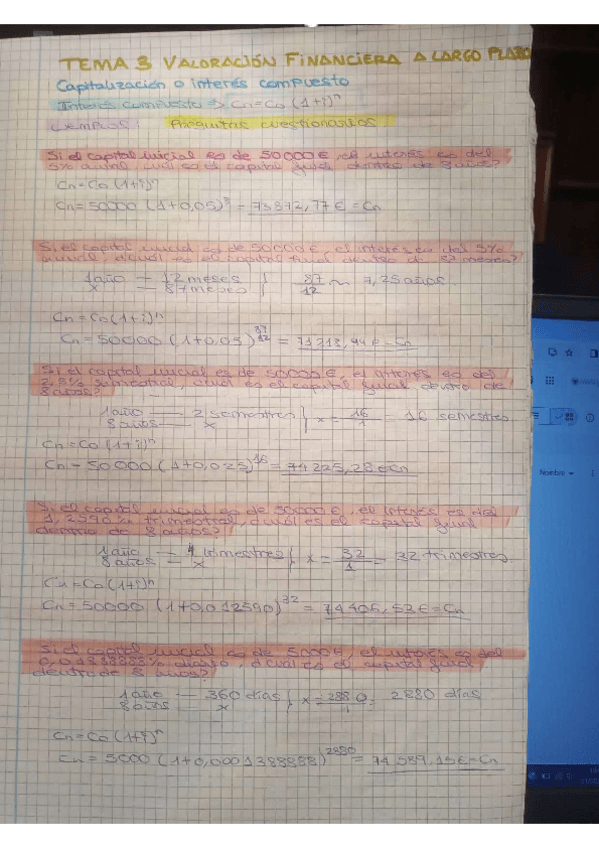 TEMA 3 VALORACIÓN FINANCIERA A LARGO PLAZO
Capitalización o interés compuesto
Interés compuesto => Cn=Co(1+i)^n
EJEMPLOS: Preguntas cuestionarios
Si el capital inicial es de 50000€, el interés es del
5% anual, cuál es el capital final dentro de 8 años?
Cn=Co(1+i)^n
Cn=50000 (1+0,05)^8 = 73872,77€=Cn
Si el capital inicial es de 50000€, el interés es del 5%
anual, ¿cuál es el capital final dentro de 87 meses?
1año — 12 meses } 87
x — 87 meses 12 = 7,25 años.
Cn=Co(1+i)^n
Cn=50000(1+0,05)^87/12 = 71218,94€=Cn
Si el capital inicial es de 50000€, el interés es del
2,5% semestral, cuál es el capital final dentro de
8 años?
1año — 2 semestres } x = 16/1 = 16 semestres
8 años — x
Cn=Co(1+i)^n
Cn=50000(1+0,025)^16 = 74225,28€=Cn
Si el capital inicial es de 50000€, el interés es del
1,2590% trimestral, ¿cuál es el capital final
dentro de 8 años?
1año — 4 trimestres } x = 32/1 = 32 trimestres.
8años — x
Cn=Co(1+i)^n
Cn=50000 (1+0,012590)^32 = 74405,53€=Cn
Si el capital inicial es de 5000€, el interés es del
0,01388888% diario, ¿cuál es el capital final
dentro de 8 años?
1año — 360 días } x = 2880/1 = 2880 días
8años — x
Cn=Co(1+i)^n
Cn=5000 (1+0,0001388888)^2880 = 74589,15€=Cn
Nombre